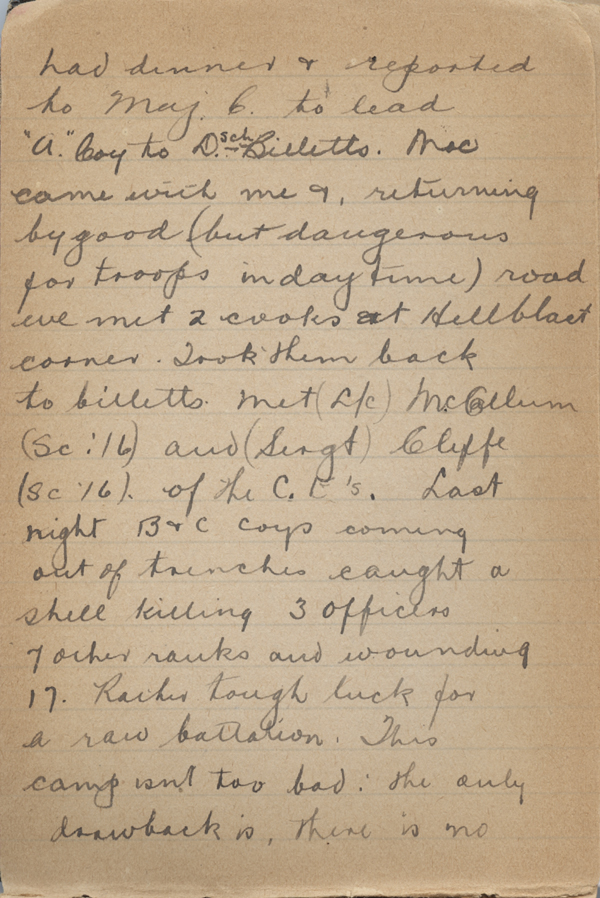 had dinner & reported
to Maj. C. to lead
"A." Coy to D.sch Billetts. Mac
came with me &, returning
by good (but dangerous
for troops in day time) road
we met 2 cooks at Hellblast
corner. Took them back
to billetts. Met (L/c) McCallum
(Sc. '16) and (Sergt) Cliffe
(Sc '16). of the C. E's. Last
night B & C Coys coming
out of trenches caught a
shell killing 3 officers
7 other ranks and wounding
17. Rather tough luck for
a raw battalion. This
camp isn't too bad: the only
drawback is, there is no